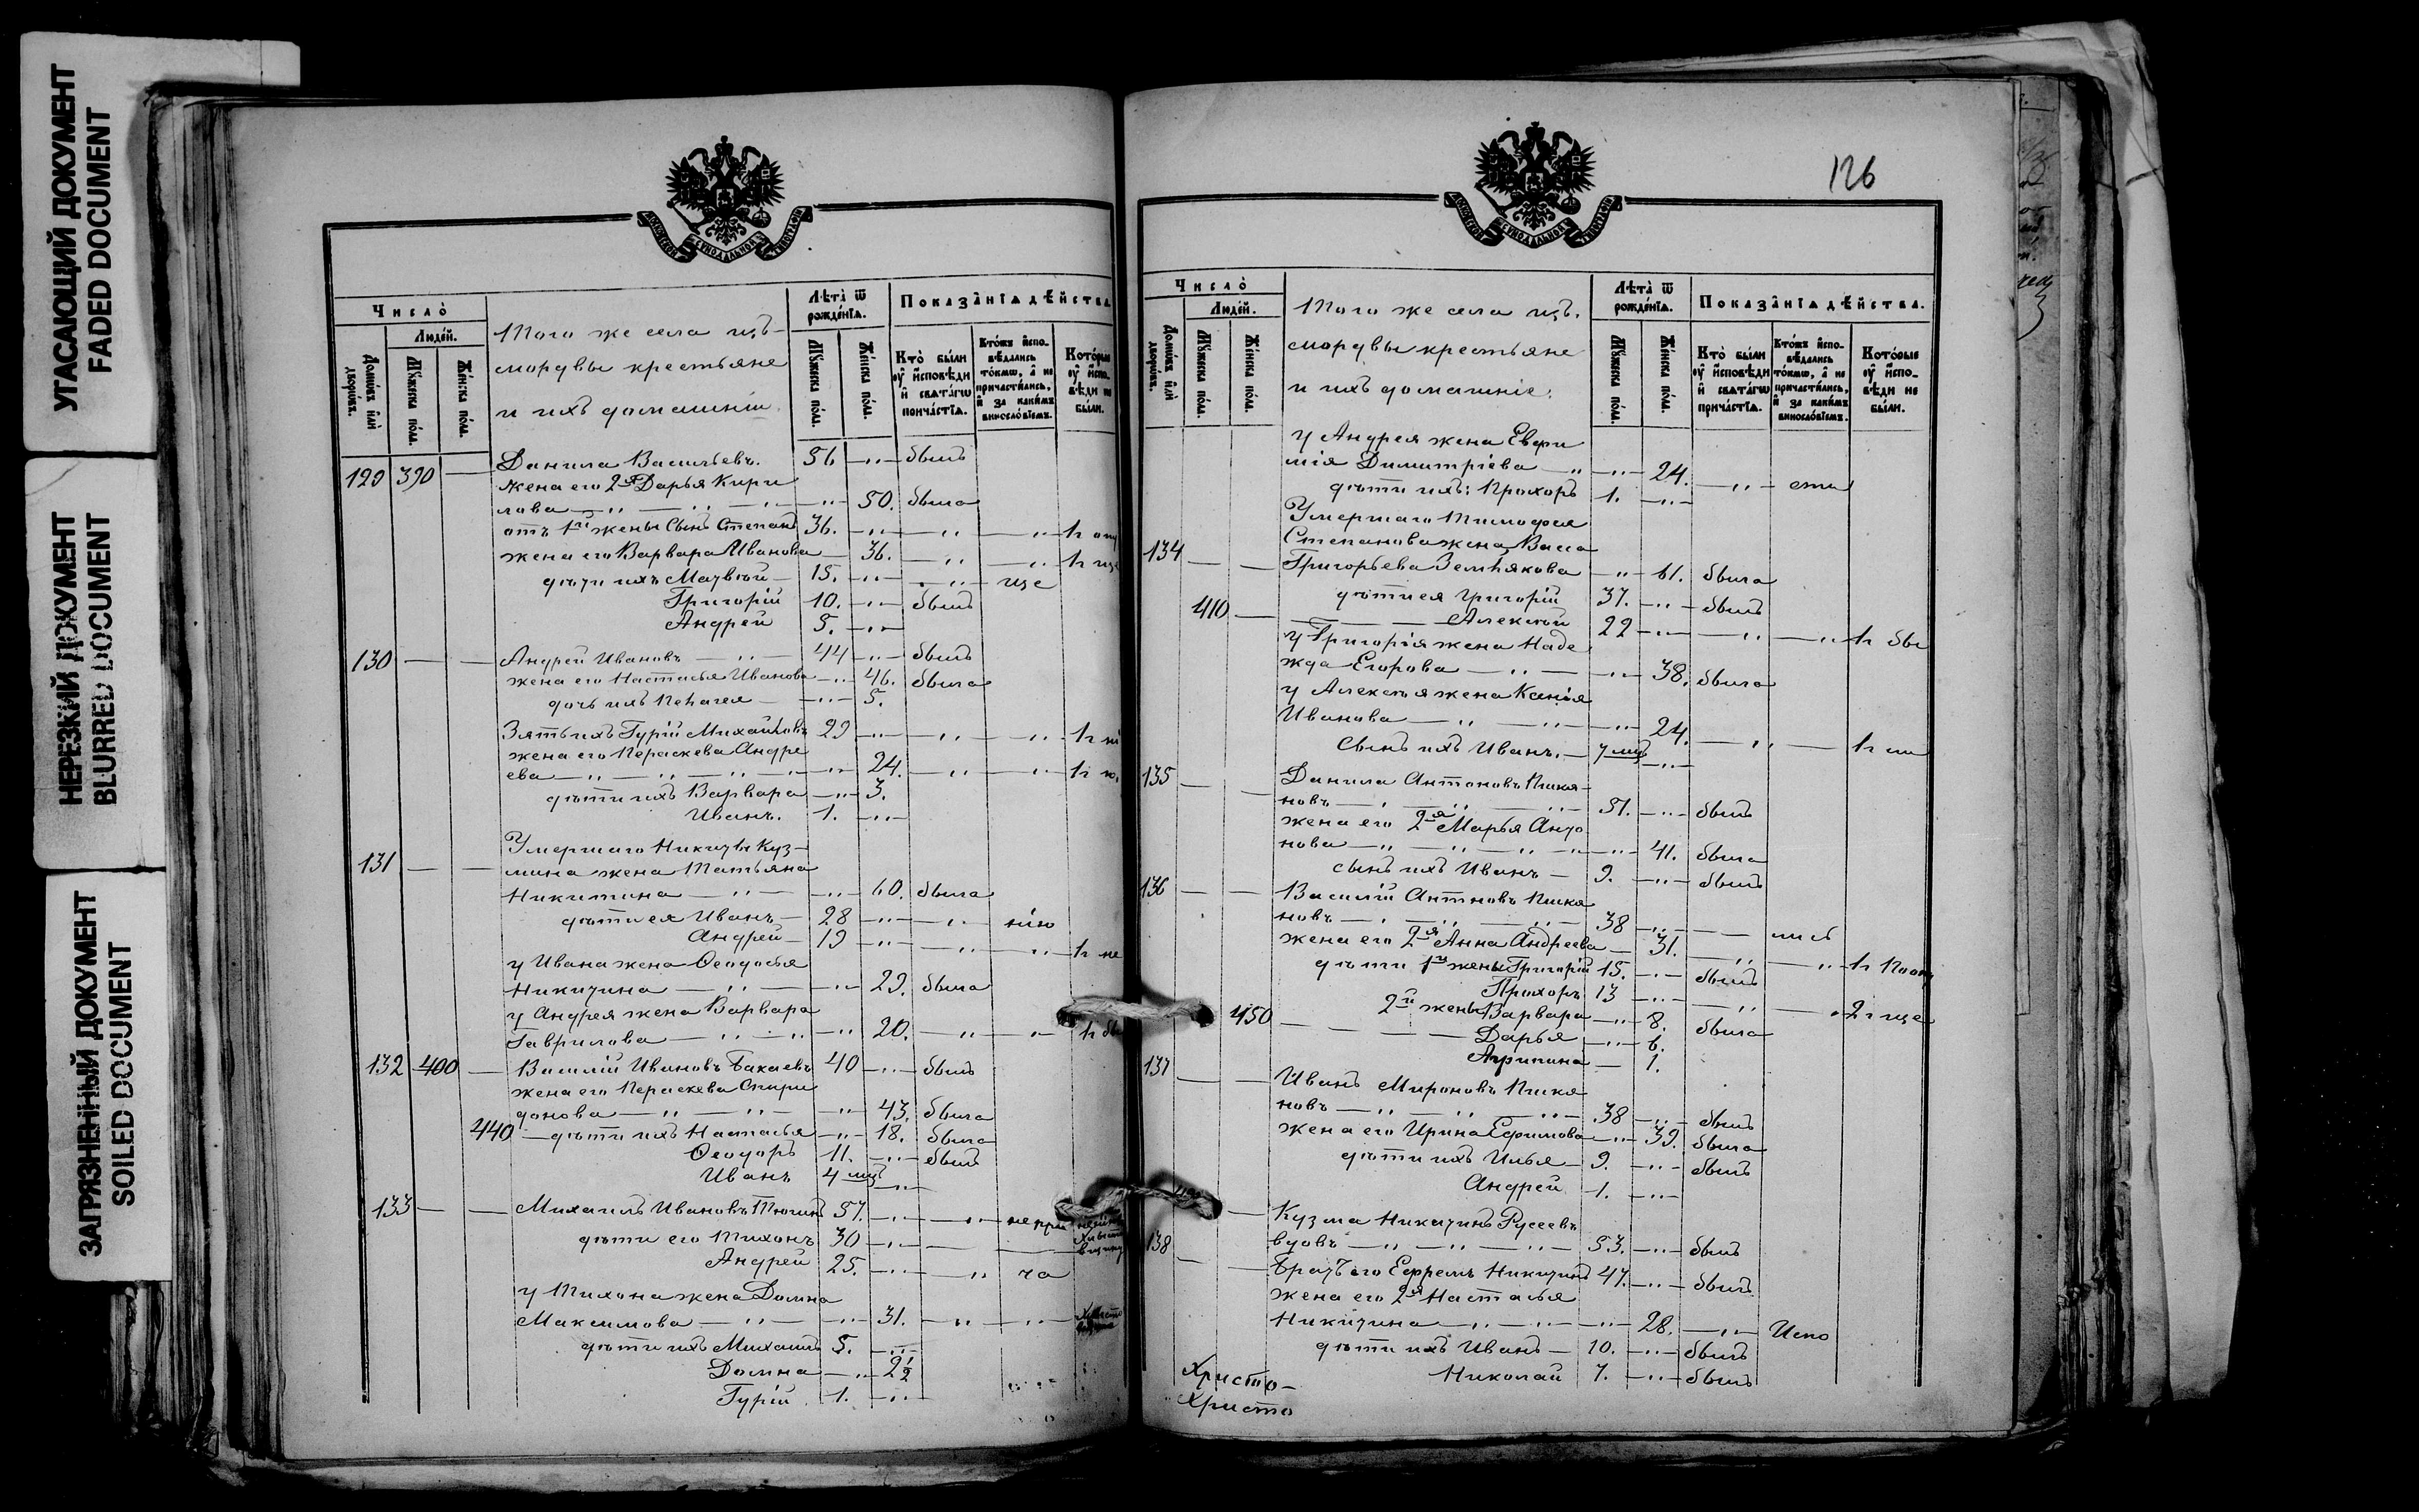 УГАСАЮЩИЙ ДОКУМЕНТ
FADED DOCUMENT
НЕРЕЗКИЙ ДОКУМЕНТ
BLURRED DOCUMENT
ЗАГРЯЗНЕННЫЙ ДОКУМЕНТ
SOILED DOCUMENT
Число̀
Людей.
Домовъ или дворовъ.
Мужеска пола.
Женска пола.
Того же села изъ
мордвы крестьяне
и ихъ домашніи.
Лѣта ѿ рожденїѧ.
Мужеска пола.
Женска пола.
Показанїѧ дѣйства
Кто были оу исповѣди и свѧтагѡ причастїѧ.
Ктожъ исповѣдались токмѡ, а не причастились, и за какимъ винословїемъ.
Которые оу исповѣди не были.
129 390 — Данила Васильевъ. 56 —"— былъ
жена его 2я Дарья Кири
лова —"— —"— 50. была
отъ 1й жены сынъ Степанъ 36. —"— —"— —"—
жена его Варвара Иванова — 36. —"— —"—
дѣти ихъ Матвѣй — 15. —"— —"—
Григорій 10. —"— былъ
Андрей 5. —"—
130 — — Андрей Ивановъ —"— 44 —"— былъ
жена его Настасья Иванова —"— 46. была
дочь ихъ Пелагея — —"— 5.
Зять ихъ Гурій Михайловъ 29 —"— —"— —"—
жена его Параскева Андре
ева —"— —"— —"— 24. —"— —"—
дѣти ихъ Варвара —"— 3.
Иванъ. 1. —"—
131 — — Умершаго Никиты Куз-
мина жена Татьяна
Никитина —"— —"— 60. была
дѣти ея Иванъ — 28 —"— —"—
Андрей — 19 —"— —"— —"—
у Ивана жена Ѳеодосья
Никитина —"— —"— 29. была
у Андрея жена Варвара
Гаврилова —"— —"— 20. —"— —"—
132 400 — Василій Ивановъ Бакаевъ 40 —"— былъ
жена его Параскева Спири
донова —"— —"— 43. была
440 — дѣти ихъ Настасья —"— 18. была
Ѳеодоръ 11. —"— былъ
Иванъ 4 мц. —"—
133 — — Михаилъ Ивановъ 57. —"— —"—
дѣти его Тихонъ 30 —"—
Андрей 25. —"— —"—
у Тихона жена Домна
Максимова —"— —"— 31. —"— —"—
дѣти ихъ Михаилъ 5. —"—
Домна —"— 2½
Гурій 1. —"—
126
Число̀
Людей.
Домовъ или дворовъ.
Мужеска пола.
Женска пола.
Того же села изъ
мордвы крестьяне
и ихъ домашніе.
Лѣта ѿ рожденїѧ.
Мужеска пола.
Женска пола.
Показанїѧ дѣйства.
Кто были оу исповѣди и свѧтагѡ причастїѧ.
Ктожъ исповѣдались токмѡ, а не причастились, и за какимъ винословїемъ.
Которые оу исповѣди не были.
у Андрея жена Евфи
мія Димитріева —"— 24. —"—
дѣти ихъ: Прохоръ 1. —"—
Умершаго Тимофея
134 Степанова жена Васса
— — Григорьева Землякова —"— 61. была
дѣти ея Григорій 37. —"— былъ
410 — Алексѣй 22 —"— —"— —"—
у Григорія жена Наде
жда Егорова —"— —"— 38. была
у Алексѣя жена Ксенія
Иванова —"— —"— 24. —"—
сынъ ихъ Иванъ. — 7 мцъ —"—
135 — — Данила Антоновъ Пикся-
новъ —"— —"— 51. —"— былъ
жена его 2я Марья Анто
нова —"— —"— 41. была
сынъ ихъ Иванъ — 9. —"— былъ
136 — — Василій Антоновъ Пикся
новъ —"— —"— 38 —"—
жена его 2я Анна Андреева — 31. —"— —"—
дѣти 1й жены Григорій 15. —"— былъ
Прохоръ 13 —"— —"—
450 2й жены Варвара —"— 8. была
Дарья —"— 6.
Агрипина — 1.
137 — — Иванъ Мироновъ Пикся
новъ —"— —"— 38 —"— былъ
жена его Ирина Ефимова —"— 39. была
дѣти ихъ Илья — 9. —"— былъ
Андрей 1. —"—
— Кузма Никитинъ Русеевъ
138 вдовъ —"— —"— 53. —"— былъ
Братъ его Ефремъ Никитинъ 47. —"— былъ
жена его 2я Настасья
Никитина —"— —"— 28. —"— Испо
дѣти ихъ Иванъ — 10. —"— былъ
Николай 7. —"— былъ
Христо-
Христо